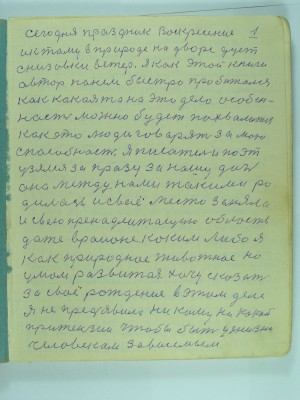 Сегодня праздник воскресение 1
и к тому в природе на дворе дует
с низовки ветер. Я как этой книги
автор нанем быстро пробатался
как какаято на это дело особен-
ность можно будет похвалится
как это люди говарят за мою
способность. Я писатель и поэт
узялся за празу за нашу
она между нами такими ро
дилась и своё место заняла
и свою пренадлижащую область
даже в районе каком либо я
как природное животное но
умом развитая хочу сказат
за своё рождение в этом деле
я не предявило ни кому ни какой
притензии чтобы быт у жизни
человеком зависемым